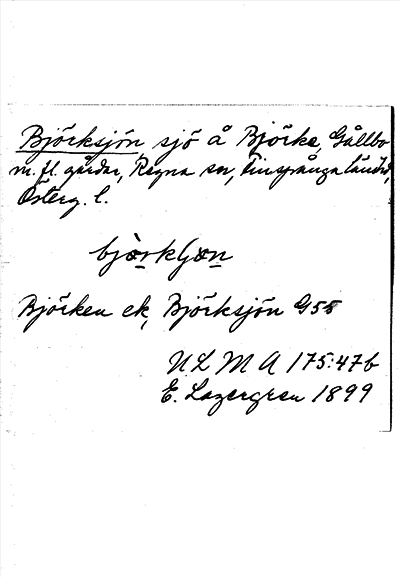 Björksjön sjö å Björke, Gållbo
m. fl. gårdar, Regna sn, Finspånga länshd,
Österg. l.
bjòrkʃön
Björken ek, Björksjön G55
ULMA 175:47b
E. Lagergren 1899